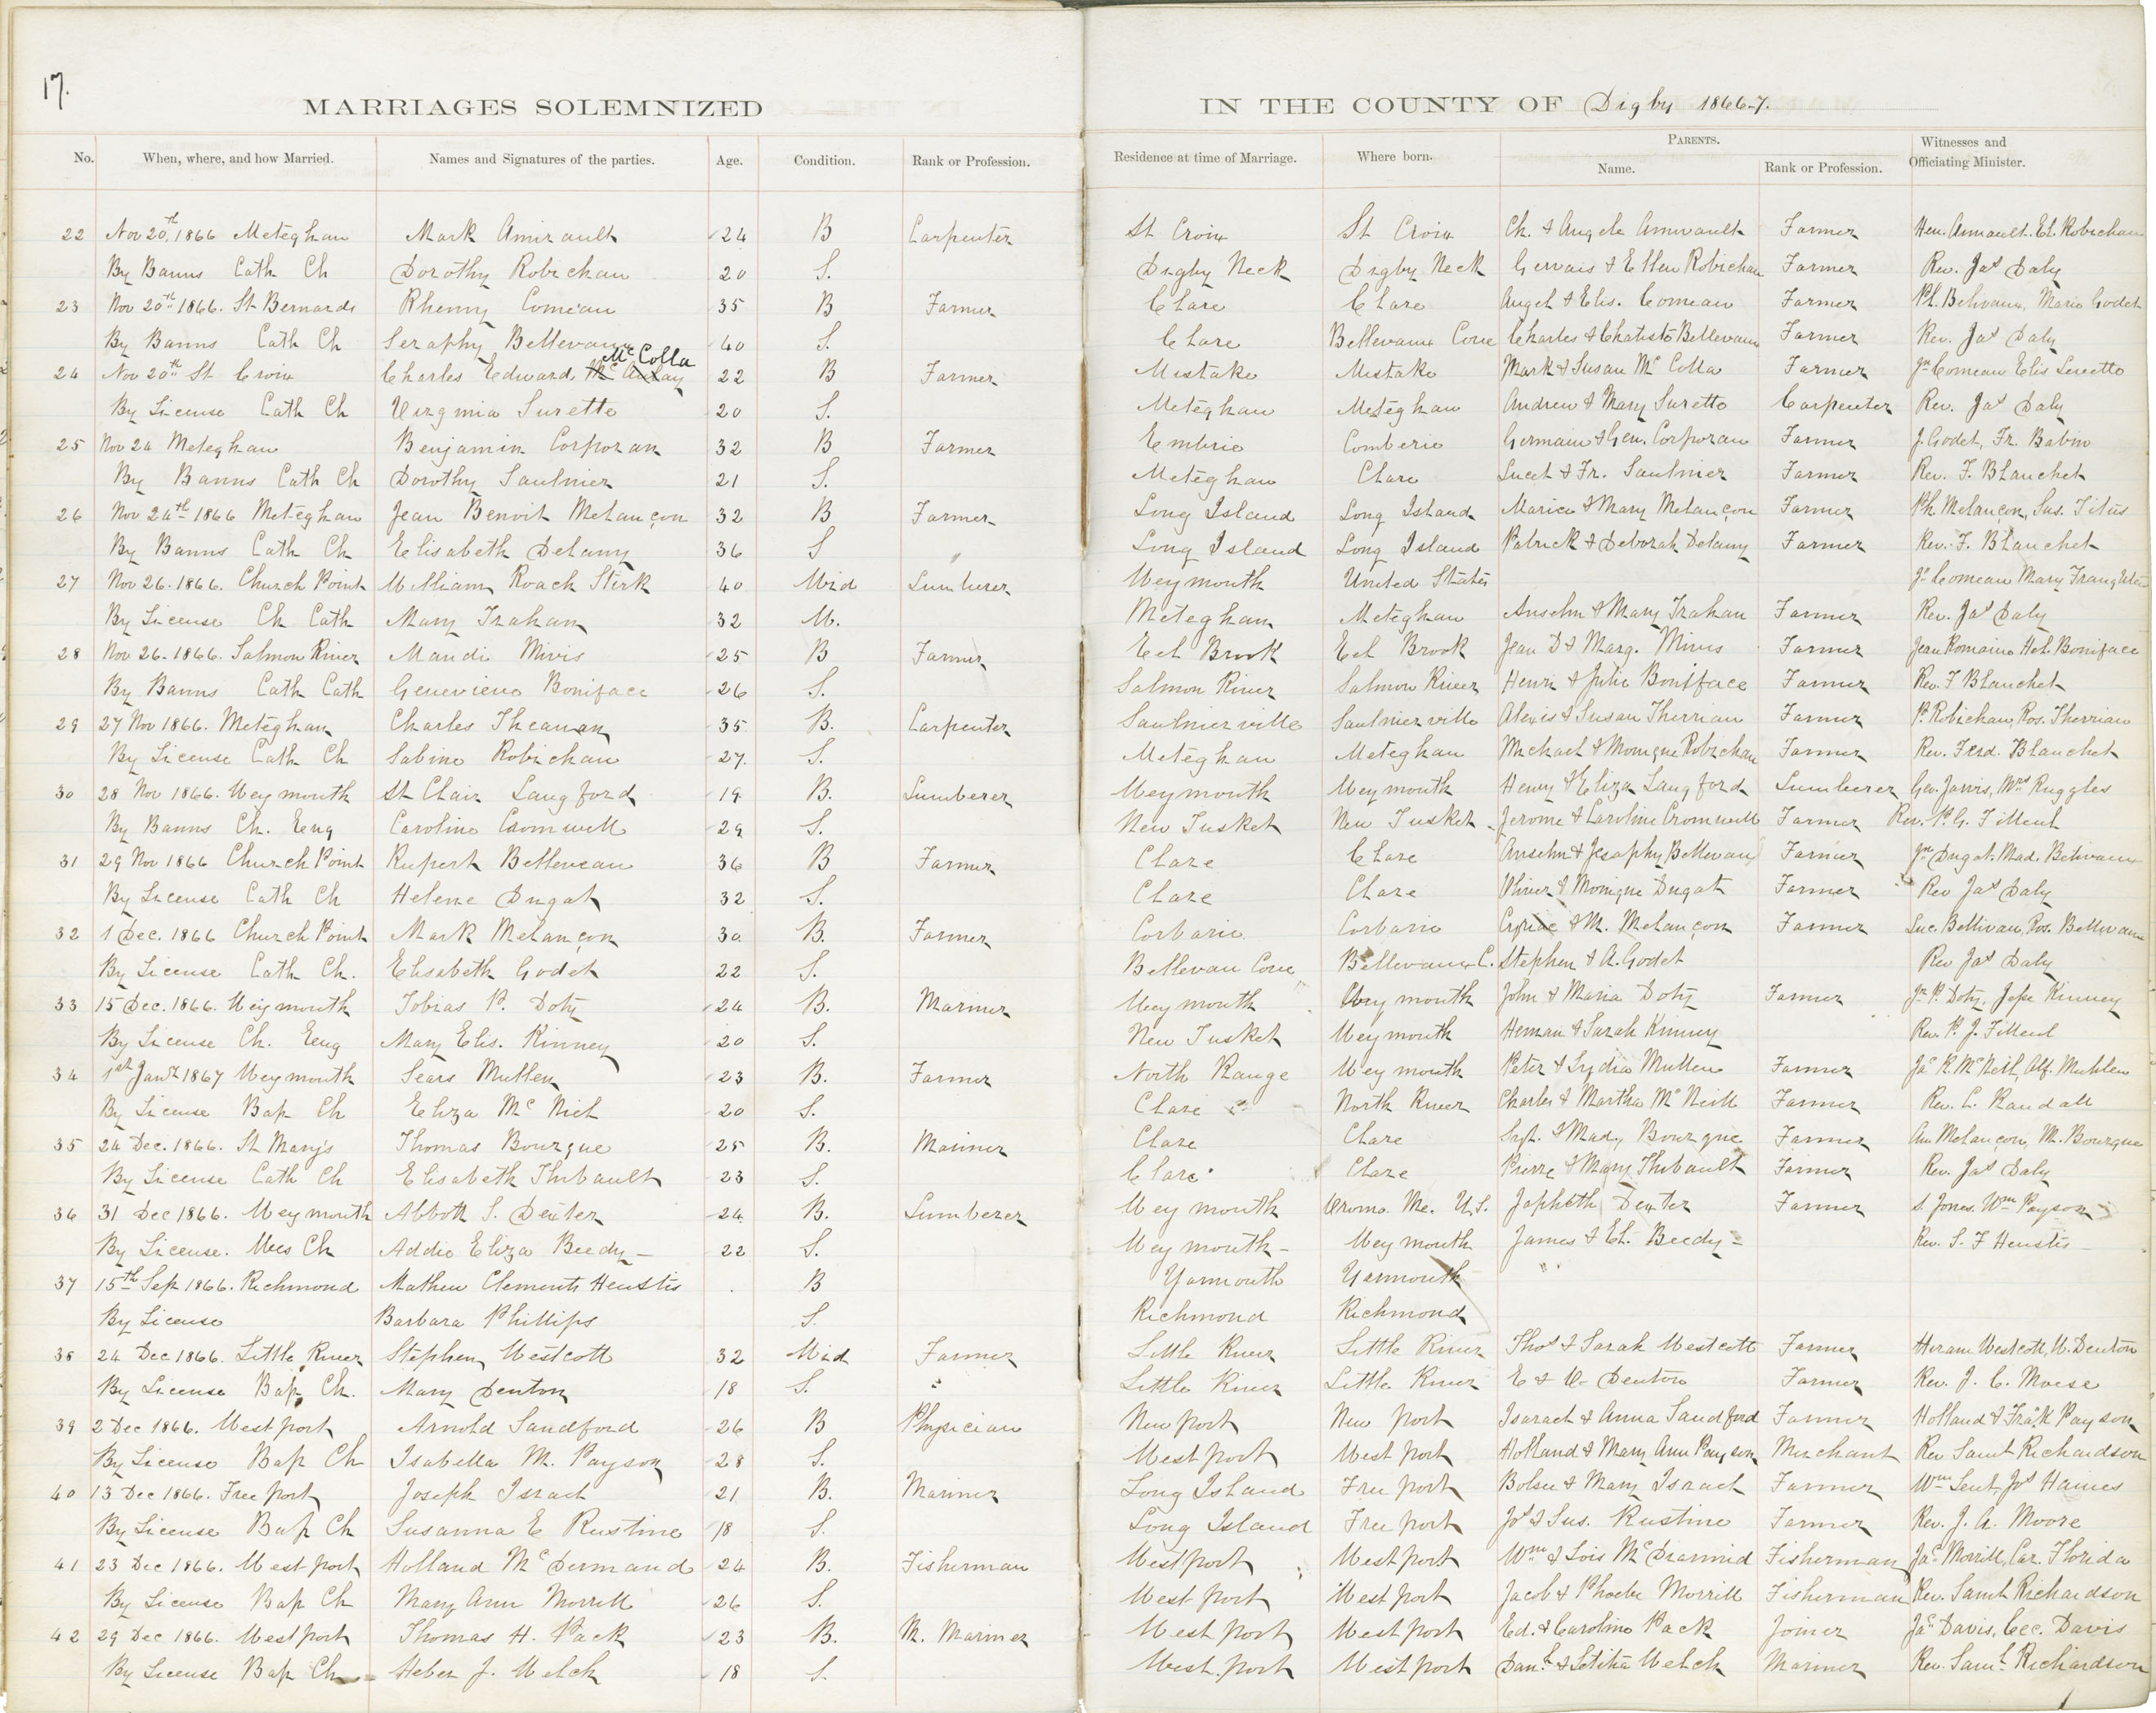 17.
MARRIAGES SOLEMNIZED IN THE COUNTY OF Digby 1866-7.
No. When, where, and how Married. Names and Signatures of the parties. Age. Condition. Rank or Profession. Residence at time of Marriage. Where born. PARENTS. Name. Rank or Profession. Witnesses and Officiating Minister.
22 Nov 20th 1866 Meteghan Mark Amirault 24 B Carpenter St Croix St Croix Ch. & Angele Amirault Farmer Hen. Amirault. El. Robichau
By Banns Cath Ch Dorothy Robichau 20 S. Digby Neck Digby Neck Gervais & Ellen Robichau Farmer Rev. Jas Daly
23 Nov 20th 1866. St Bernards Rhenny Comeau 35 B Farmer Clare Clare Angel & Elis. Comeau Farmer Ph. Belivaux, Marie Godet
By Banns Cath Ch Seraphy Bellevaux 40 S. Clare Bellevaux Cove Charles & Bellevaux Farmer Rev. Jas Daly
24 Nov 20th St Croix Charles Edward McColla 22 B Farmer Mistake Mistake Mark & Susan McColla Farmer Jn Comeau Elis Surette
By License Cath Ch Virginia Surette 20 S. Meteghan Meteghan Andrew & Mary Surette Carpenter Rev. Jas Daly
25 Nov 24 Meteghan Benjamin Corporan 32 B Farmer Embrie Comberie Germain & Gen. Corporan Farmer J. Godet, Fr. Babin
By Banns Cath Ch Dorothy Saulnier 21 S. Meteghan Clare Lucet & Fr. Saulnier Farmer Rev. F. Blanchet
26 Nov 24th 1866 Meteghan Jean Benoit Melançon 32 B Farmer Long Island Long Island Marice & Mary Melançon Farmer Ph. Melançon, Sus. Titus
By Banns Cath Ch Elisabeth Delany 36 S " Long Island Long Island Patrick & Deborah Delany Farmer Rev. F. Blanchet
27 Nov 26. 1866. Church Point William Roach Stirk 40 Wid Lumberer Weymouth United States Jn Comeau Mary
By License Ch Cath Mary Trahan 32 M. Meteghan Meteghan Anselm & Mary Trahan Farmer Rev. Jas Daly
28 Nov 26. 1866. Salmon River Maudi Mivis 25 B Farmer Eel Brook Eel Brook Jean D & Marg. Mivis Farmer Jean Romaine Hel. Boniface
By Banns Cath Cath Genevieve Boniface 26 S. Salmon River Salmon River Henri & Julie Boniface Farmer Rev. F Blanchet
29 27 Nov 1866. Meteghan Charles Therian 35 B. Carpenter Saulnierville Saulnierville Alexis & Susan Therrian Farmer Robichau, Ros. Therrian
By License Cath Ch Sabine Robichau 27. S. Meteghan Meteghan Michael & Monique Robichau Farmer Rev. Ferd. Blanchet
30 28 Nov 1866. Weymouth St Clair Langford 19 B. Lumberer Weymouth Weymouth Henry & Eliza Langford Lumberer Geo. Jarvis, Wm Ruggles
By Banns Ch. Eng Caroline Cromwell 29 S. New Tusket New Tusket Jerome & Caroline Cromwell Farmer Rev. P. G. Filleul
31 29 Nov 1866 Church Point Rupert Belleveau 36 B Farmer Clare Clare Anselm & Jesaphy Bellevau Farmer Jn Dugat. Mad. Belivaux
By License Cath Ch Helene Dugat 32 S. Clare Clare Oliver & Monique Dugat Farmer Rev Jas Daly
32 1 Dec. 1866 Church Point Mark Melançon 30 B. Farmer Corbarie Corbarie & M. Melançon Farmer Luc. Bellivau, Ros. Bellivau
By License Cath Ch. Elisabeth Godet 22 S. Bellevau Cove Bellevaux C. Stephen & A. Godet Rev Jas Daly
33 15 Dec. 1866. Weymouth Tobias P. Doty 24 B. Mariner Weymouth Weymouth John & Maria Doty Farmer Jn P. Doty, Jesse Kinney
By License Ch. Eng Mary Elis. Kinney 20 S. New Tusket Weymouth Heman & Sarah Kinney Rev. P. J. Filleul
34 1st Jany 1867 Weymouth Sears Mullen 23 B. Farmer North Range Weymouth Peter & Lydia Mullen Farmer Jas R. McNeil, Alf. Muhlen
By License Bap Ch Eliza McNiel 20 S. Clare North River Charles & Martha McNeill Farmer Rev. C. Randall
35 24 Dec. 1866. St Mary's Thomas Bourque 25 B. Mariner Clare Clare & Mady Bourque Farmer Am Melançon, M. Bourque
By License Cath Ch Elisabeth Thibault 23 S. Clare Clare Pierre & Mary Thibault Farmer Rev. Jas Daly
36 31 Dec 1866. Weymouth Abbott S. Dexter 24 B. Lumberer Weymouth Orono. Me. U.S. Japheth Dexter Farmer S. Jones. Wm Payson
By License. Wes Ch Addie Eliza Beedy 22 S. Weymouth Weymouth James & El. Beedy Rev. S. F Heustis
37 15th Sep 1866. Richmond Mathew Clements Heustis B Yarmouth Yarmouth
By License Barbara Phillips S. Richmond Richmond
38 24 Dec 1866. Little River Stephen Westcott 32 Wid Farmer Little River Little River Thos & Sarah Westcott Farmer Hiram Westcott, W. Denton
By License Bap Ch. Mary Denton 18 S. Little River Little River E & U Denton Farmer Rev. J. C. Morse
39 2 Dec 1866. Westport Arnold Sandford 26 B Physician New port New port Isarael & Anna Sandford Farmer Holland & Frank Payson
By License Bap Ch Isabella M. Payson 28 S. Westport Westport Holland & Mary Ann Payson Merchant Rev Saml Richardson
40 13 Dec 1866. Freeport Joseph Israel 21 B. Mariner Long Island Free port Bolsee & Mary Israel Farmer Wm Lent Jos Haines
By License Bap Ch Susanna E Rustine 18 S. Long Island Free port Jos & Sus. Rustine Farmer Rev. J. A. Moore
41 23 Dec 1866. Westport Holland McDermand 24 B. Fisherman Westport Westport Wm & Lois McDiarmid Fisherman Jac Morrill, Car. Florida
By License Bap Ch Mary Ann Morrill 26 S. Westport Westport Jacob & Phoebe Morrill Fisherman Rev. Saml Richardson
42 29 Dec 1866. Westport Thomas H. Pack 23 B. M. Mariner Westport Westport Ed. & Caroline Pack Joiner Jas Davis, Cec. Davis
By License Bap Ch Heber J. Welch 18 S. Westport Westport Danl & Letitia Welch Mariner Rev. Saml Richardson